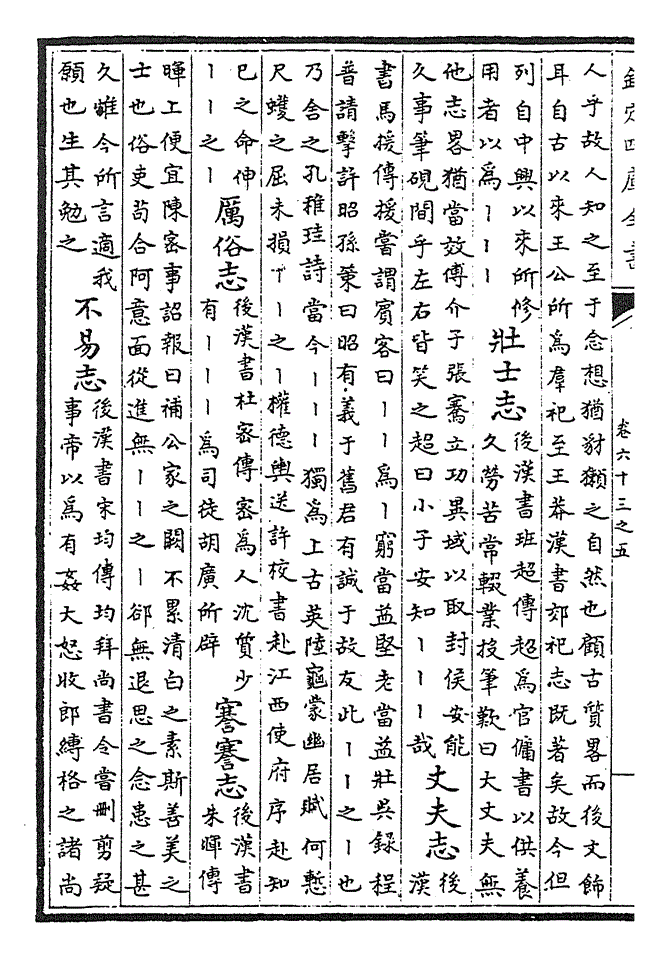 欽定四庫全書
卷六十三之五
人乎故人知之至于念想猶豺獺之自然也顧古質畧而後文飾
耳自古以來王公所為羣祀至王莽漢書郊祀志既著矣故今但
列自中興以來所修
用者以為丨丨丨
壯士志
後漢書班超傳超為官傭書以供養
久勞苦常輟業投筆歎曰大丈夫無
他志畧猶當效傅介子張騫立功異域以取封侯安能
久事筆硯間乎左右皆笑之超曰小子安知丨丨丨哉
丈夫志
後
漢
書馬援傳援嘗謂賓客曰丨丨為丨窮當益堅老當益壯吳錄程
普請擊許昭孫策曰昭有義于舊君有誠于故友此丨丨之丨也
乃舍之孔稚珪詩當今丨丨丨獨為上古英陸龜蒙幽居賦何慙
尺蠖之屈未損丨丨之丨權德輿送許校書赴江西使府序赴知
巳之命伸
丨丨之丨
厲俗志
後漢書杜密傳密為人沈質少
有丨丨丨為司徒胡廣所辟
謇謇志
後漢書
朱暉傳
暉上便宜陳密事詔報曰補公家之闕不累清白之素斯善美之
士也俗吏苟合阿意面從進無丨丨之丨郤無退思之念患之甚
久雖今所言適我
願也生其勉之
不易志
後漢書宋均傳均拜尚書令嘗刪剪疑
事帝以為有姦大怒收郎縛格之諸尚